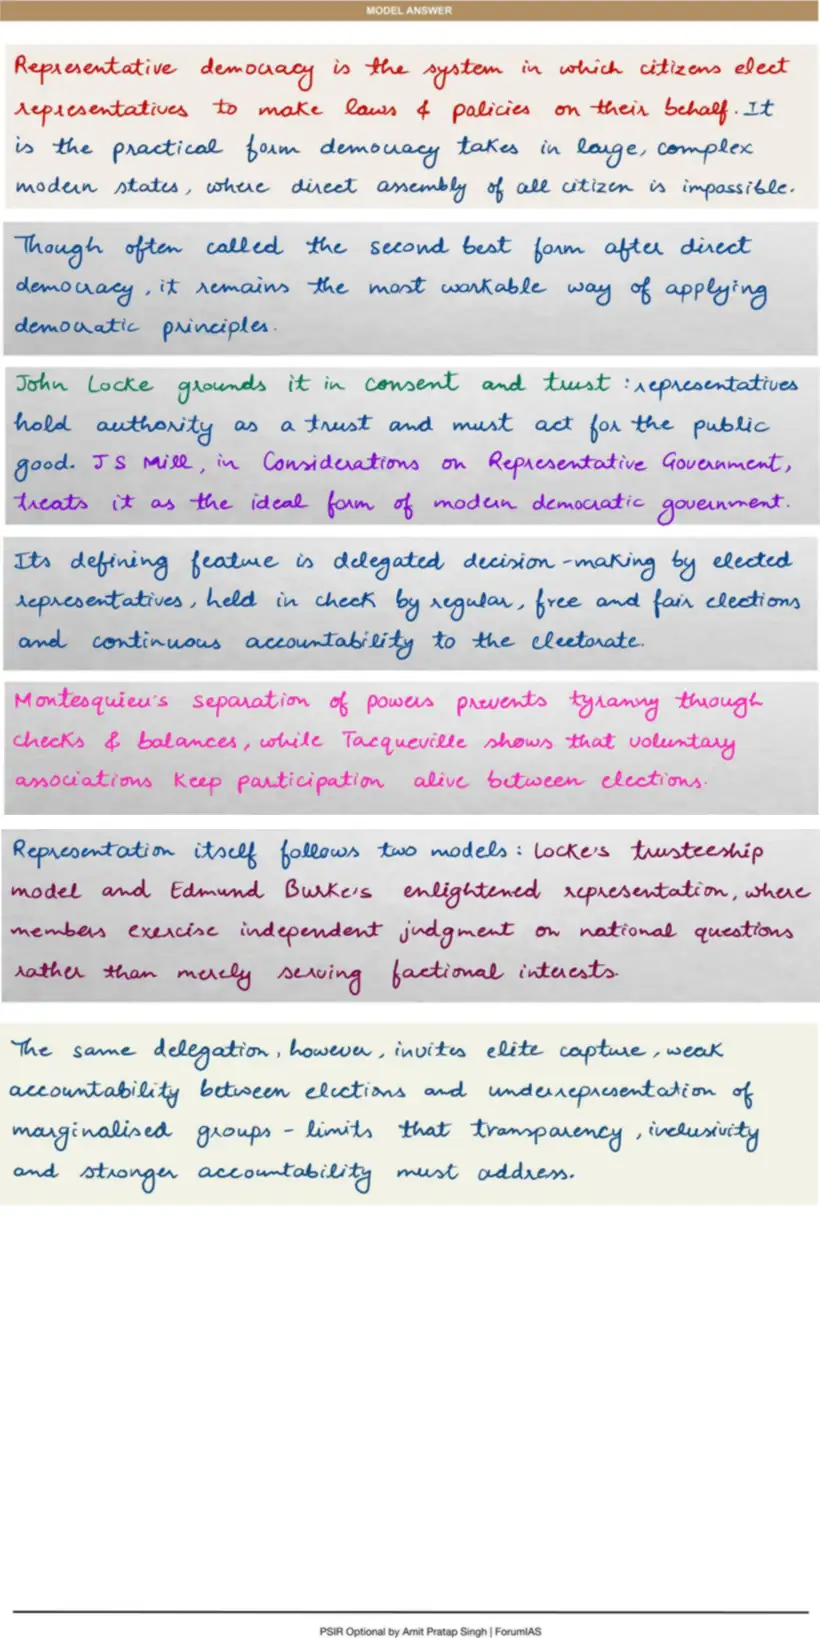 MODEL ANSWER
Representative democracy is the system in which citizens elect
representatives to make laws & policies on their behalf. It
is the practical form democracy takes in large, complex
modern states, where direct assembly of all citizen is impossible.
Though often called the second best form after direct
democracy, it remains the most workable way of applying
democratic principles.
John Locke grounds it in consent and trust : representatives
hold authority as a trust and must act for the public
good. J S Mill, in Considerations on Representative Government,
treats it as the ideal form of modern democratic government.
Its defining feature is delegated decision-making by elected
representatives, held in check by regular, free and fair elections
and continuous accountability to the electorate.
Montesquieu's separation of powers prevents tyranny through
checks & balances, while Tacqueville shows that voluntary
associations keep participation alive between elections.
Representation itself follows two models : Locke's trusteeship
model and Edmund Burke's enlightened representation, where
members exercise independent judgment on national questions
rather than merely serving factional interests.
The same delegation, however, invites elite capture, weak
accountability between elections and underrepresentation of
marginalised groups - limits that transparency, inclusivity
and stronger accountability must address.
PSIR Optional by Amit Pratap Singh | ForumIAS